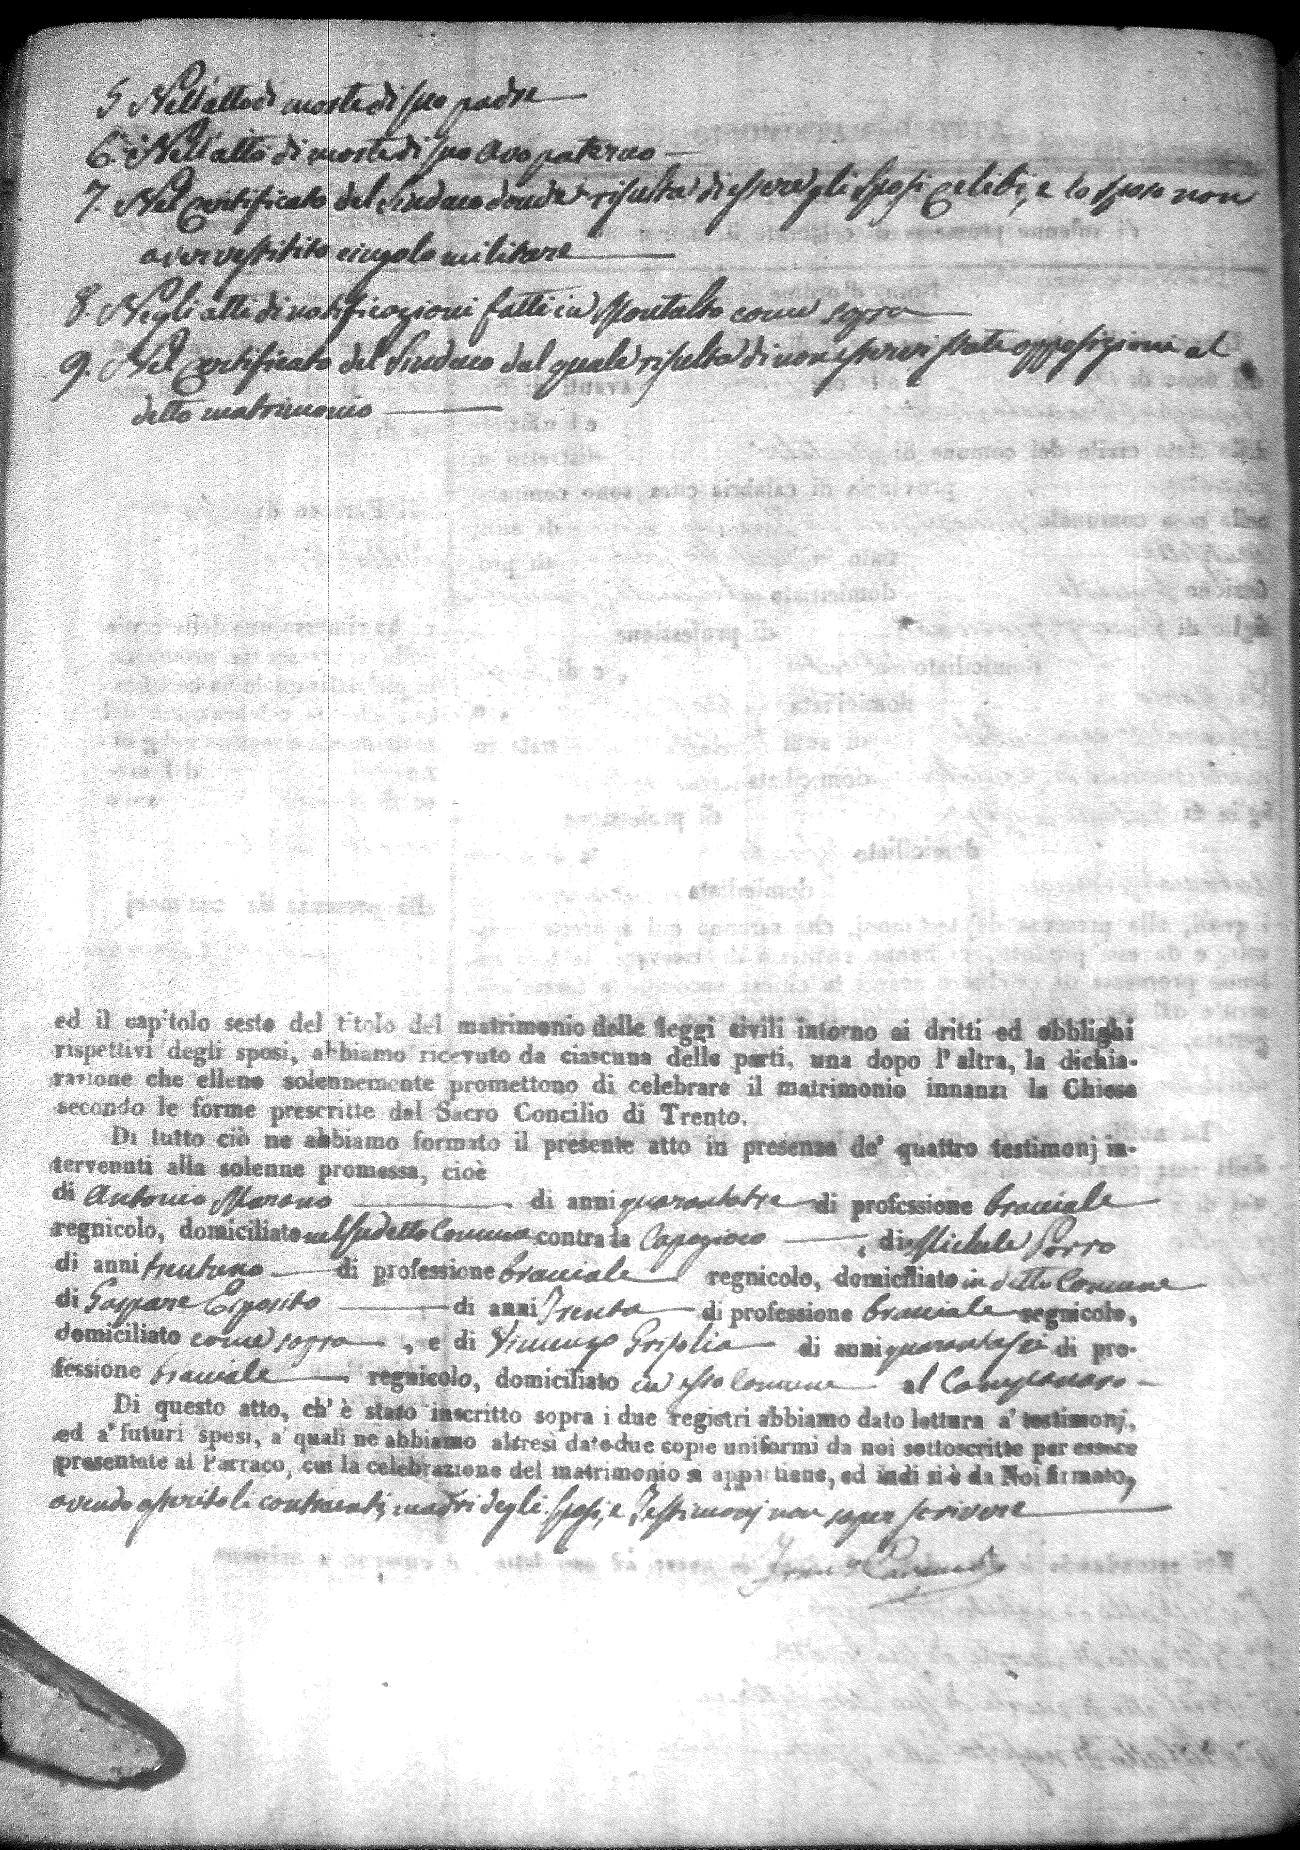 5. Nell'atto di morte di suo padre
6. Nell'atto di morte di suo avo paterno
7. Nel Certificato del Sindaco donde risulta di essere gli sposi celibi, e lo sposo non
aver vestitito cingolo militare
8. Negli atti di notificazioni fatti in Montalto come sopra
9. Nel Certificato del Sindaco dal quale risulta di non esservi state opposizioni al
detto matrimonio
ed il capitolo sesto del titolo del matrimonio delle leggi civili intorno ai dritti ed obblighi
rispettivi degli sposi, abbiamo ricevuto da ciascuna delle parti, una dopo l'altra, la dichia-
razione che elleno solennemente promettono di celebrare il matrimonio innanzi la Chiesa
secondo le forme prescritte dal Sacro Concilio di Trento.
Di tutto ciò ne abbiamo formato il presente atto in presenza de' quattro testimonj in-
tervenuti alla solenne promessa, cioè
di Antonio Morano di anni quarantatre di professione bracciale
regnicolo, domiciliato nel sudetto Comune contrada , di Michele Porro
di anni trentuno di professione bracciale regnicolo, domiciliato in detto Comune
di Gaspare Esposito di anni Trenta di professione bracciale regnicolo,
domiciliato come sopra , e di Vincenzo Grifolia di anni quarantasei di pro-
fessione bracciale regnicolo, domiciliato in esso Comune al
Di questo atto, ch'è stato inscritto sopra i due registri abbiamo dato lettura a' testimonj,
ed a' futuri sposi, a' quali ne abbiamo altresì date due copie uniformi da noi sottoscritte per essere
presentate al Parraco, cui la celebrazione del matrimonio si appartiene, ed indi si è da Noi firmato,
avendo asserito li contraenti, madri degli sposi, e Testimonj non saper scrivere